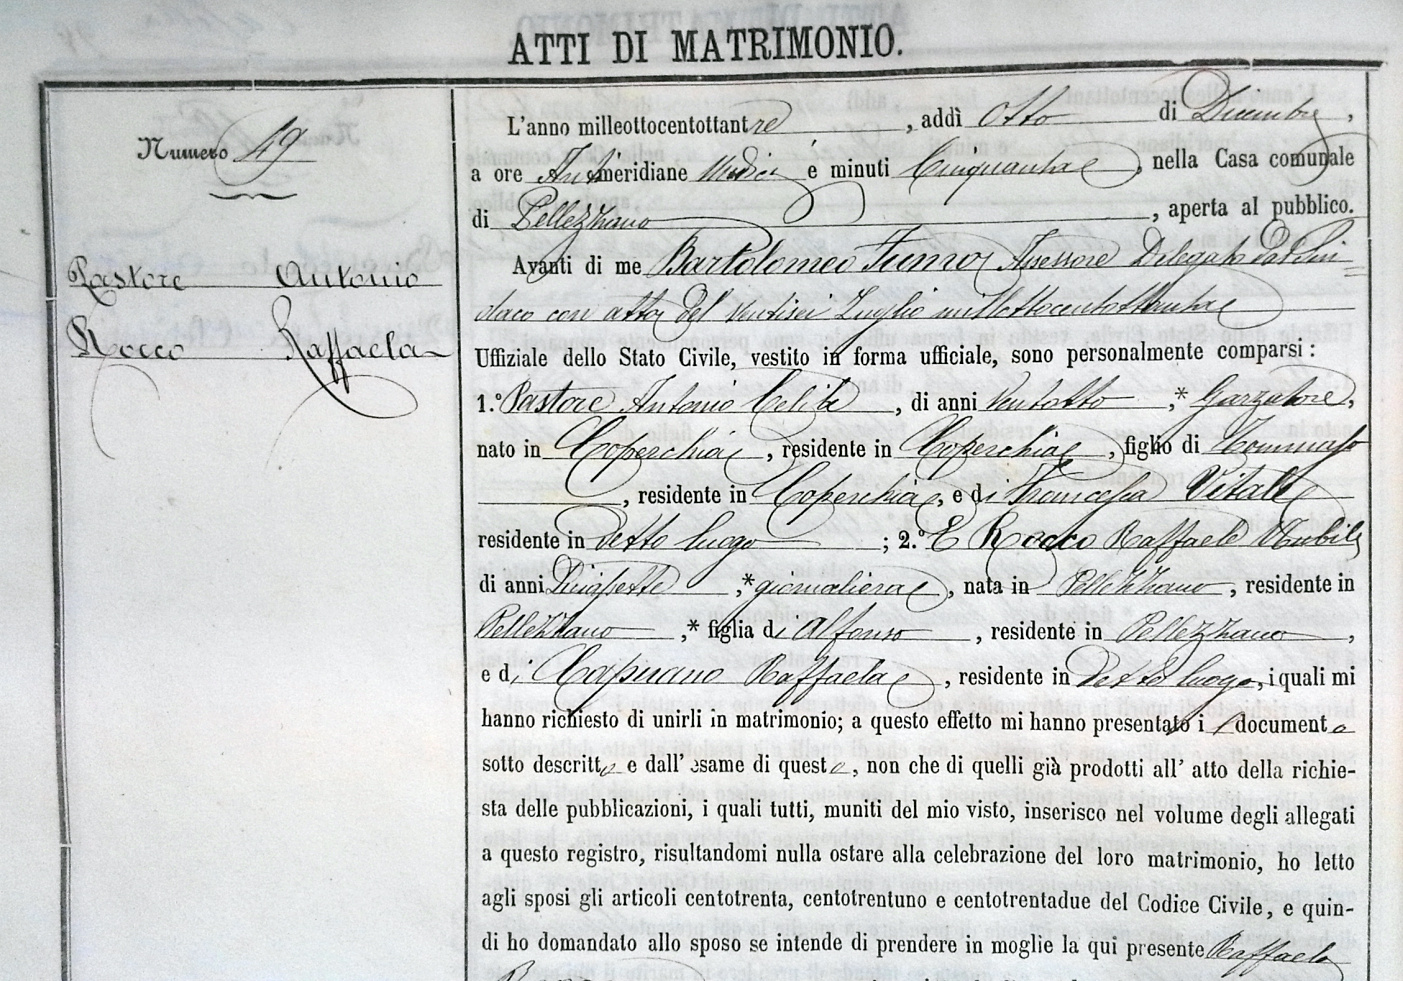 ATTI DI MATRIMONIO.
Numero 49
Pastore Antonio
Rocco Raffaela
L'anno milleottocentottantre, addì Otto di Dicembre,
a ore Antimeridiane Undici e minuti Cinquanta, nella Casa comunale
di Pellezzano, aperta al pubblico.
Avanti di me Bartolomeo Fumo Assessore Delegato dal Sin=
daco con atto del Ventisei Luglio milleottocentottanta
Uffiziale dello Stato Civile, vestito in forma ufficiale, sono personalmente comparsi:
1.° Pastore Antonio Celibe, di anni Ventotto,* Garzatore,
nato in Coperchia, residente in Coperchia, figlio di Tommaso
, residente in Coperchia, e di Francesca Vitale
residente in detto luogo; 2.° E Rocco Raffaele Nubile
di anni Diciassette,* giornaliera, nata in Pellezzano, residente in
Pellezzano,* figlia di Alfonso, residente in Pellezzano,
e di Capuano Raffaela, residente in detto luogo, i quali mi
hanno richiesto di unirli in matrimonio; a questo effetto mi hanno presentato i document
sotto descritt e dall' esame di quest, non che di quelli già prodotti all' atto della richie-
sta delle pubblicazioni, i quali tutti, muniti del mio visto, inserisco nel volume degli allegati
a questo registro, risultandomi nulla ostare alla celebrazione del loro matrimonio, ho letto
agli sposi gli articoli centotrenta, centotrentuno e centotrentadue del Codice Civile, e quin-
di ho domandato allo sposo se intende di prendere in moglie la qui presente Raffaela